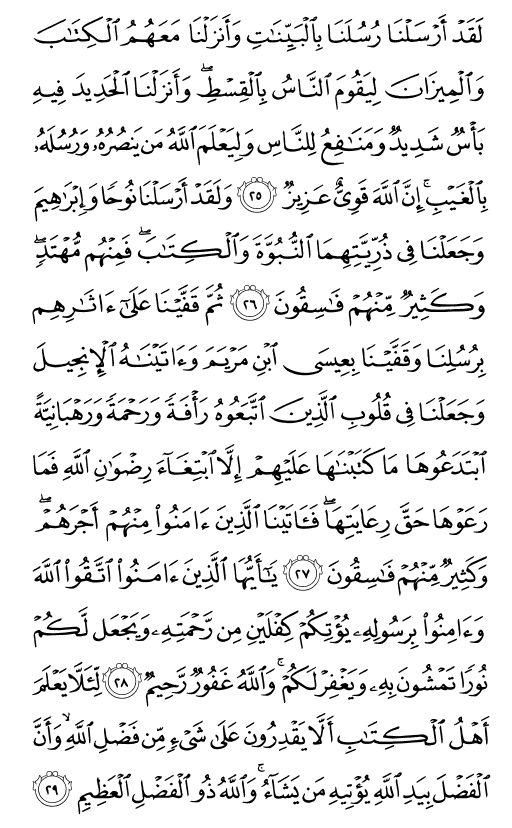 لَقَدْ أَرْسَلْنَا رُسُلَنَا بِالْبَيِّنَاتِ وَأَنزَلْنَا مَعَهُمُ الْكِتَابَ
وَالْمِيزَانَ لِيَقُومَ النَّاسُ بِالْقِسْطِ ۖ وَأَنزَلْنَا الْحَدِيدَ فِيهِ
بَأْسٌ شَدِيدٌ وَمَنَافِعُ لِلنَّاسِ وَلِيَعْلَمَ اللَّهُ مَن يَنصُرُهُ وَرُسُلَهُ
بِالْغَيْبِ ۚ إِنَّ اللَّهَ قَوِيٌّ عَزِيزٌ ٢٥ وَلَقَدْ أَرْسَلْنَا نُوحًا وَإِبْرَاهِيمَ
وَجَعَلْنَا فِي ذُرِّيَّتِهِمَا النُّبُوَّةَ وَالْكِتَابَ ۖ فَمِنْهُم مُّهْتَدٍ ۖ
وَكَثِيرٌ مِّنْهُمْ فَاسِقُونَ ٢٦ ثُمَّ قَفَّيْنَا عَلَىٰ ءَاثَارِهِم
بِرُسُلِنَا وَقَفَّيْنَا بِعِيسَى ابْنِ مَرْيَمَ وَءَاتَيْنَاهُ الْإِنجِيلَ
وَجَعَلْنَا فِي قُلُوبِ الَّذِينَ اتَّبَعُوهُ رَأْفَةً وَرَحْمَةً وَرَهْبَانِيَّةً
ابْتَدَعُوهَا مَا كَتَبْنَاهَا عَلَيْهِمْ إِلَّا ابْتِغَاءَ رِضْوَانِ اللَّهِ فَمَا
رَعَوْهَا حَقَّ رِعَايَتِهَا ۖ فَـَٔاتَيْنَا الَّذِينَ ءَامَنُوا مِنْهُمْ أَجْرَهُمْ ۖ
وَكَثِيرٌ مِّنْهُمْ فَاسِقُونَ ٢٧ يَا أَيُّهَا الَّذِينَ ءَامَنُوا اتَّقُوا اللَّهَ
وَءَامِنُوا بِرَسُولِهِ يُؤْتِكُمْ كِفْلَيْنِ مِن رَّحْمَتِهِ وَيَجْعَل لَّكُمْ
نُورًا تَمْشُونَ بِهِ وَيَغْفِرْ لَكُمْ ۚ وَاللَّهُ غَفُورٌ رَّحِيمٌ ٢٨ لِّئَلَّا يَعْلَمَ
أَهْلُ الْكِتَابِ أَلَّا يَقْدِرُونَ عَلَىٰ شَيْءٍ مِّن فَضْلِ اللَّهِ ۙ وَأَنَّ
الْفَضْلَ بِيَدِ اللَّهِ يُؤْتِيهِ مَن يَشَاءُ ۚ وَاللَّهُ ذُو الْفَضْلِ الْعَظِيمِ ٢٩